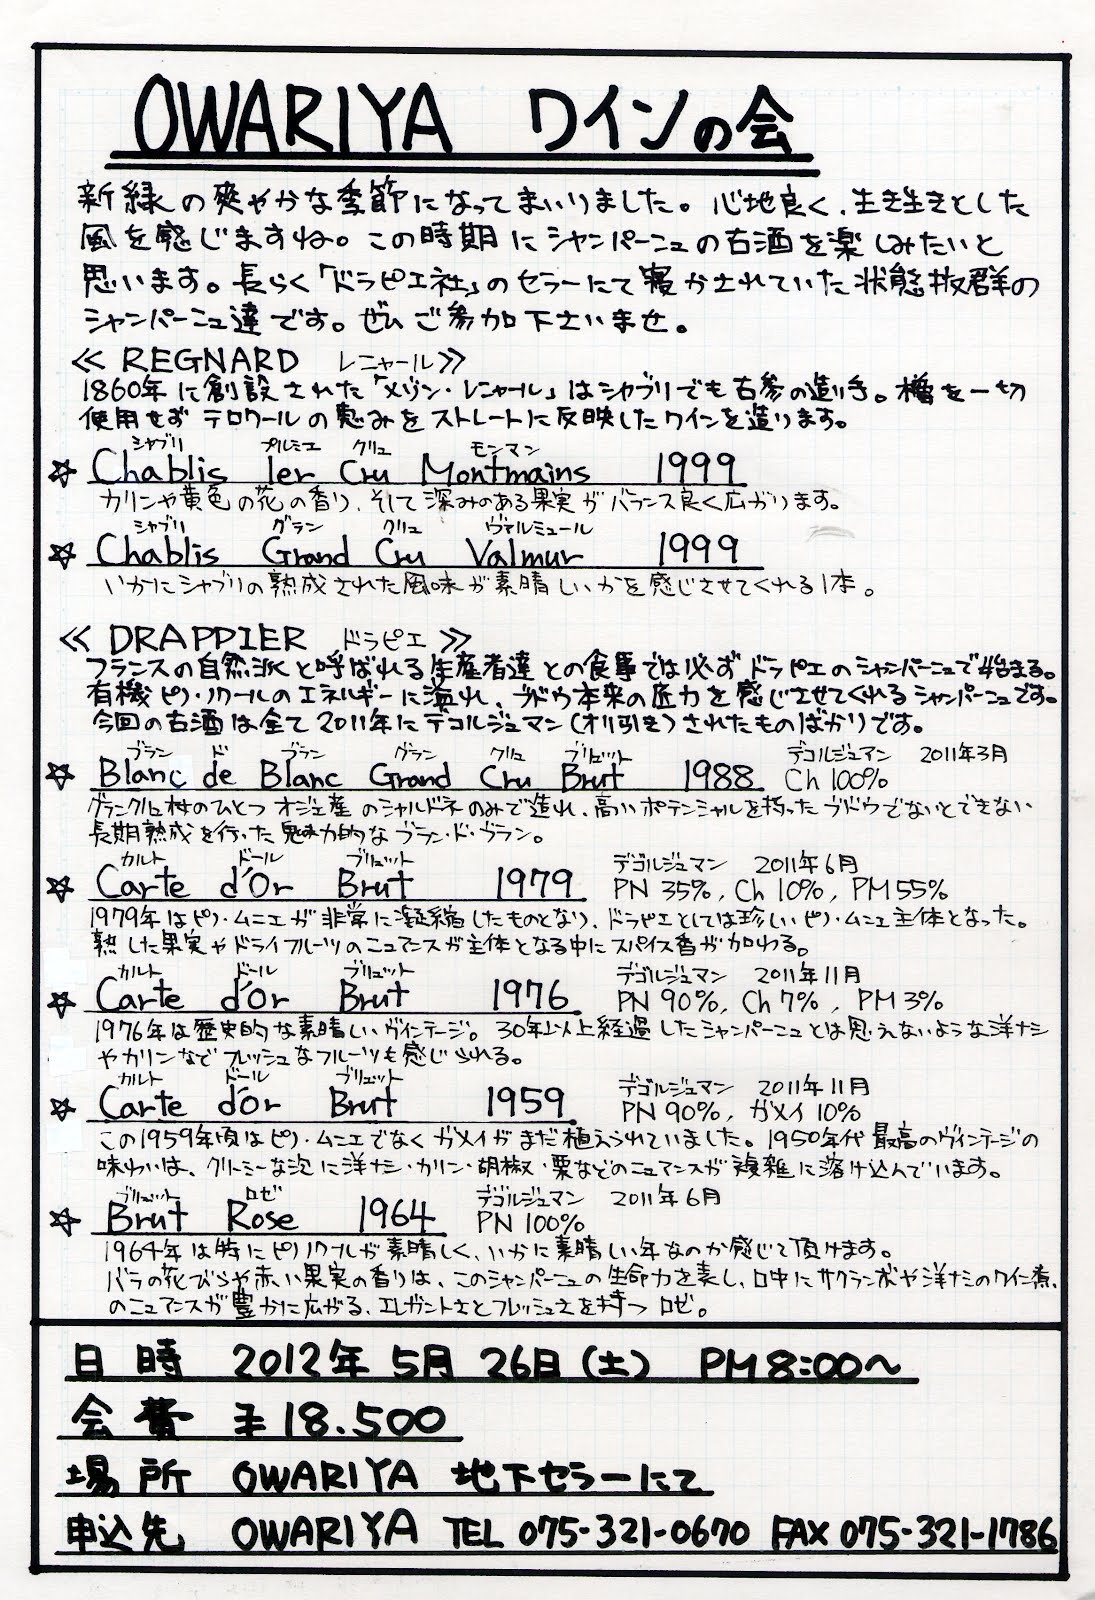 OWARIYA ワインの会
新緑の爽やかな季節になってまいりました。心地良く、生き生きとした
風を感じますね。この時期にシャンパーニュの古酒を楽しみたいと
思います。長らく「ドラピエ社」のセラーにて寝かされていた状態抜群の
シャンパーニュ達です。ぜひご参加下さいませ。
≪ REGNARD レニャール≫
1860年に創設された「メゾン・レニャール」はシャブリでも古参の造り手。樽を一切
使用せずテロワールの恵みをストレートに反映したワインを造ります。
シャブリ プルミエ クリュ モンマン
☆ Chablis 1er Cru Montmains 1999
カリンや黄色の花の香り、そして深みのある果実がバランス良く広がります。
シャブリ グラン クリュ ヴァルミュール
☆ Chablis Grand Cru Valmur 1999
いかにシャブリの熟成された風味が素晴しいかを感じさせてくれる1本。
≪ DRAPPIER ドラピエ ≫
フランスの自然派と呼ばれる生産者達との食事では必ずドラピエのシャンパーニュで始まる。
有機ピノ・ノワールのエネルギーに溢れ、ブドウ本来の底力を感じさせてくれるシャンパーニュです。
今回の古酒は全て2011年にデゴルジュマン(オリ引き)されたものばかりです。
ブラン ド ブラン グラン クリュ ブリュット デゴルジュマン 2011年3月
☆ Blanc de Blanc Grand Cru Brut 1988 Ch 100%
グランクリュ村のひとつオジェ産のシャルドネのみで造れ、高いポテンシャルを持ったブドウでないとできない
長期熟成を行った魅力的なブラン・ド・ブラン。
カルト ドール ブリュット デゴルジュマン 2011年6月
☆ Carte d'Or Brut 1979 PN 35%, Ch 10%, PM 55%
1979年はピノ・ムニエが非常に凝縮したものとなり、ドラピエとしては珍しいピノ・ムニエ主体となった。
熟した果実やドライフルーツのニュアンスが主体となる中にスパイス香が加わる。
カルト ドール ブリュット デゴルジュマン 2011年11月
☆ Carte d'Or Brut 1976 PN 90%, Ch 7%, PM 3%
1976年は歴史的な素晴しいヴィンテージ。30年以上経過したシャンパーニュとは思えないような洋ナシ
やカリンなどフレッシュなフルーツも感じられる。
カルト ドール ブリュット デゴルジュマン 2011年11月
☆ Carte d'Or Brut 1959 PN 90%, ガメイ 10%
この1959年頃はピノ・ムニエでなくガメイがまだ植えられていました。1950年代最高のヴィンテージの
味わいは、クリーミーな泡に洋ナシ・カリン・胡椒・栗などのニュアンスが複雑に溶け込んでいます。
ブリュット ロゼ デゴルジュマン 2011年6月
☆ Brut Rose 1964 PN 100%
1964年は特にピノノワールが素晴しく、いかに素晴しい年なのか感じて頂けます。
バラの花びらや赤い果実の香りは、このシャンパーニュの生命力を表し、口中にサクランボや洋ナシのワイン煮、
のニュアンスが豊かに広がる、エレガントさとフレッシュさを持つロゼ。
日時 2012年5月26日(土) PM8:00～
会費 ¥18.500
場所 OWARIYA 地下セラーにて
申込先 OWARIYA TEL 075-321-0670 FAX 075-321-1786